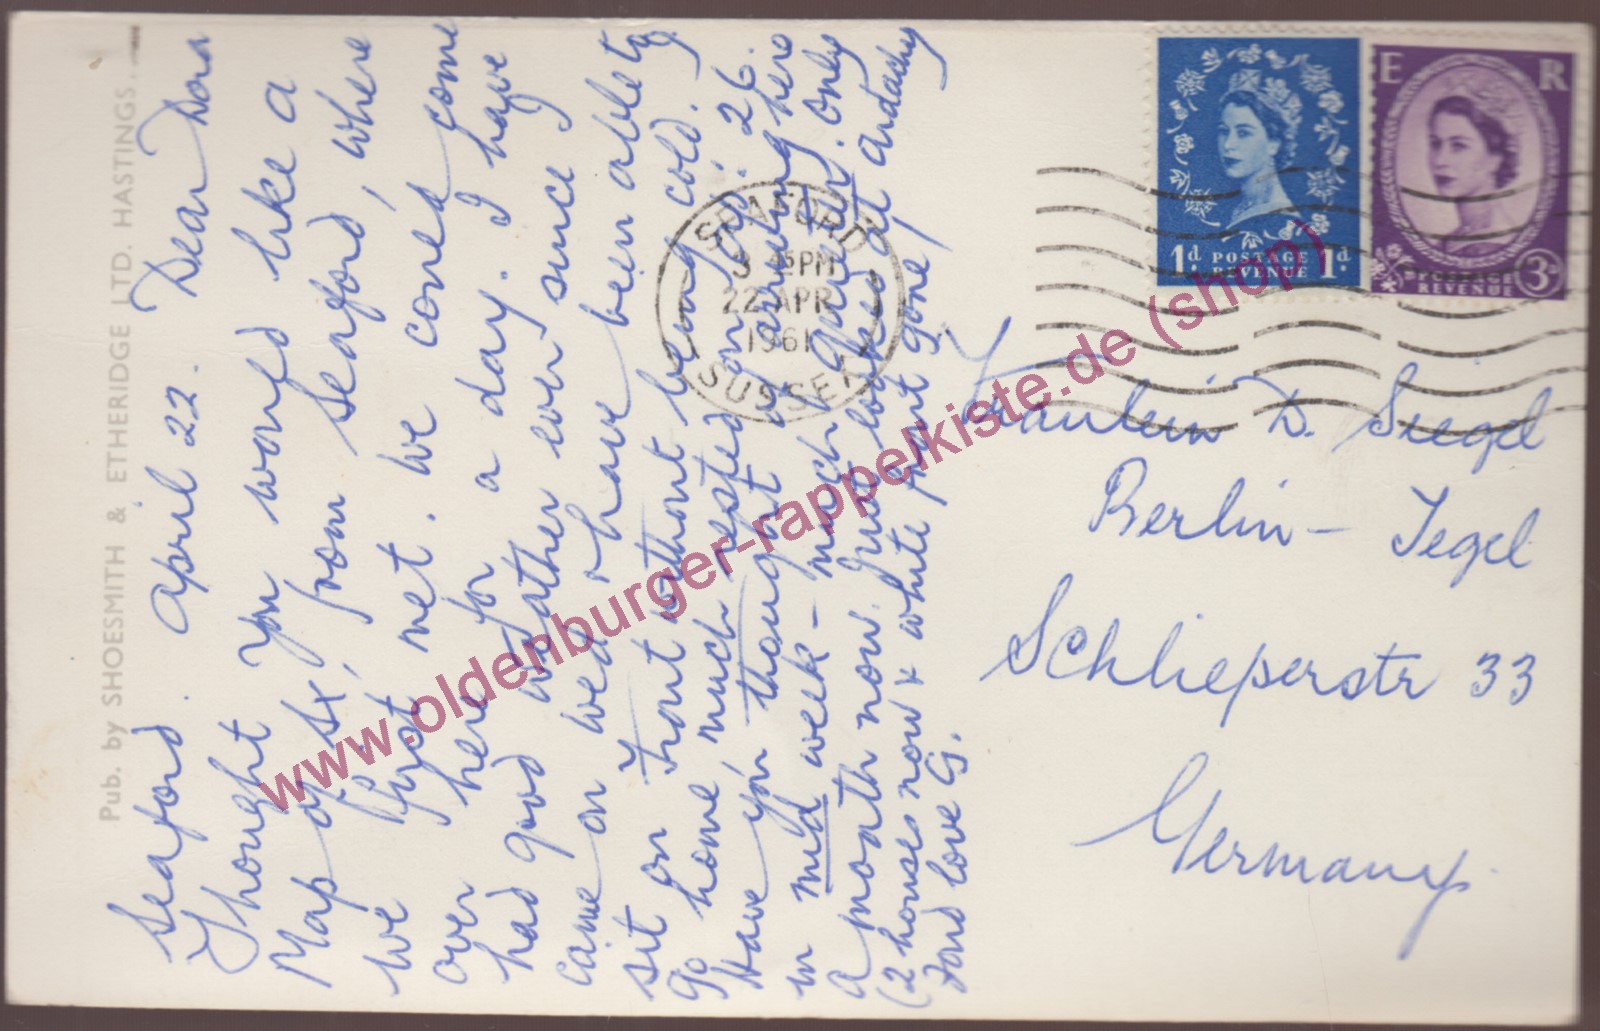 Pub. by SHOESMITH & ETHERIDGE LTD. HASTINGS.
Seaford. April 22. Dear Dora
Thought you would like a
Map of Sx, from Seaford, where
we first met. We could come
over here for a day. I have
had good weather ever since I
came on Wed & have been able to
sit on front without being cold. I
go home, much rested on Ap: 26.
Have you thought of arriving here
in mid week - much quieter. Only
a month now. Just looked at and
(2 houses now & white paint gone)
Fond love G.
SEAFORD
PM
22 APR
1961
SUSSEX
1d POSTAGE REVENUE 1d.
E R
POSTAGE REVENUE 3D
Fräulein D. Siegel
Berlin - Tegel
Schlieperstr 33
Germany.
www.oldenburger-rappelkiste.de (shop)